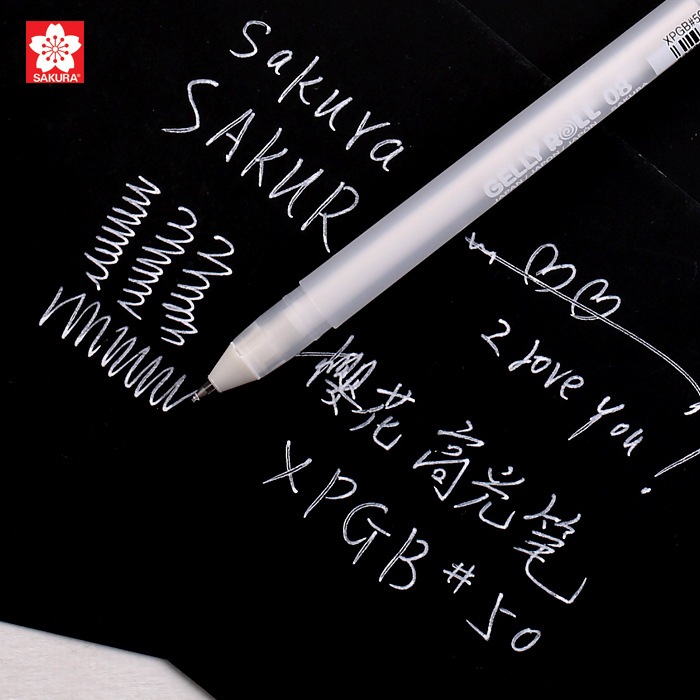 SAKURA
Sakura
SAKUR
XPGB#50
GELLY ROLL 08
I love you!
樱花高光笔
XPGB#50